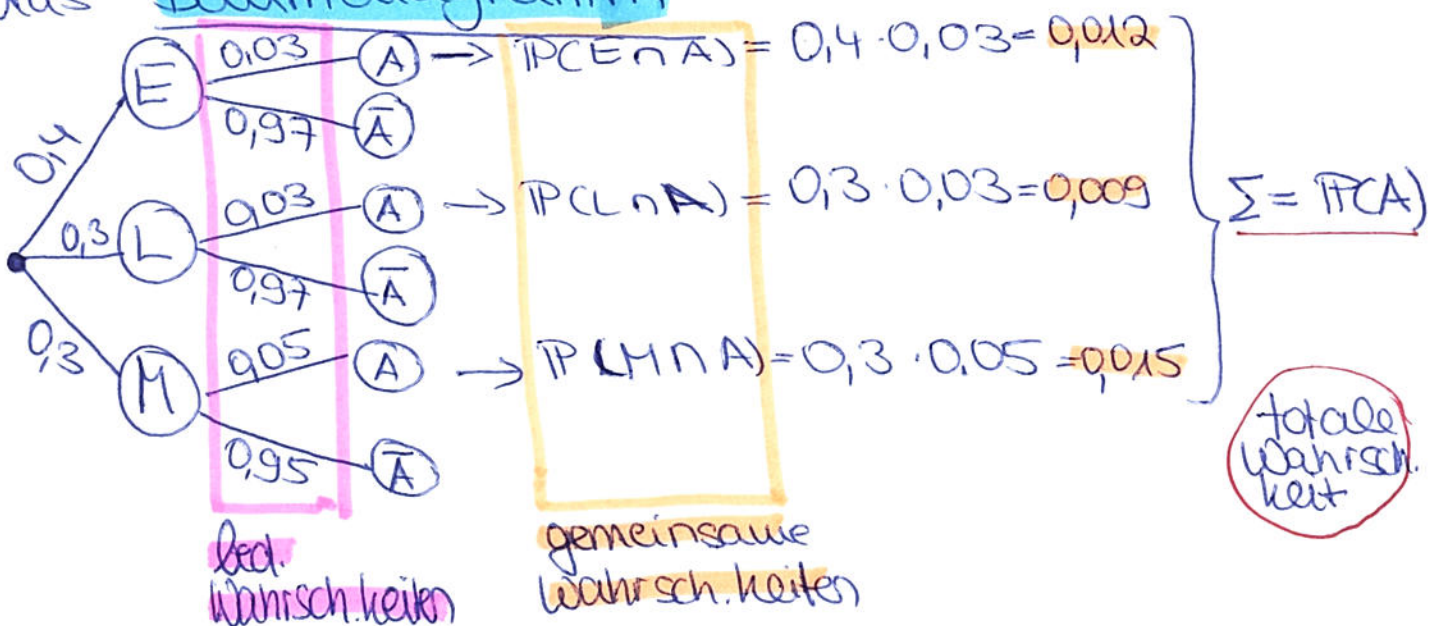 Baumdiagramm
0,03 A → P(E ∩ A) = 0,4 · 0,03 = 0,012
E
0,97 Ā
0,4
0,03 A → P(L ∩ A) = 0,3 · 0,03 = 0,009 Σ = P(A)
0,3 L
0,97 Ā
0,3
0,05 A → P(M ∩ A) = 0,3 · 0.05 = 0,015
M
0,95 Ā
totale
Wahrsch.
keit
bed.
Wahrsch.keiten
gemeinsame
Wahrsch.keiten